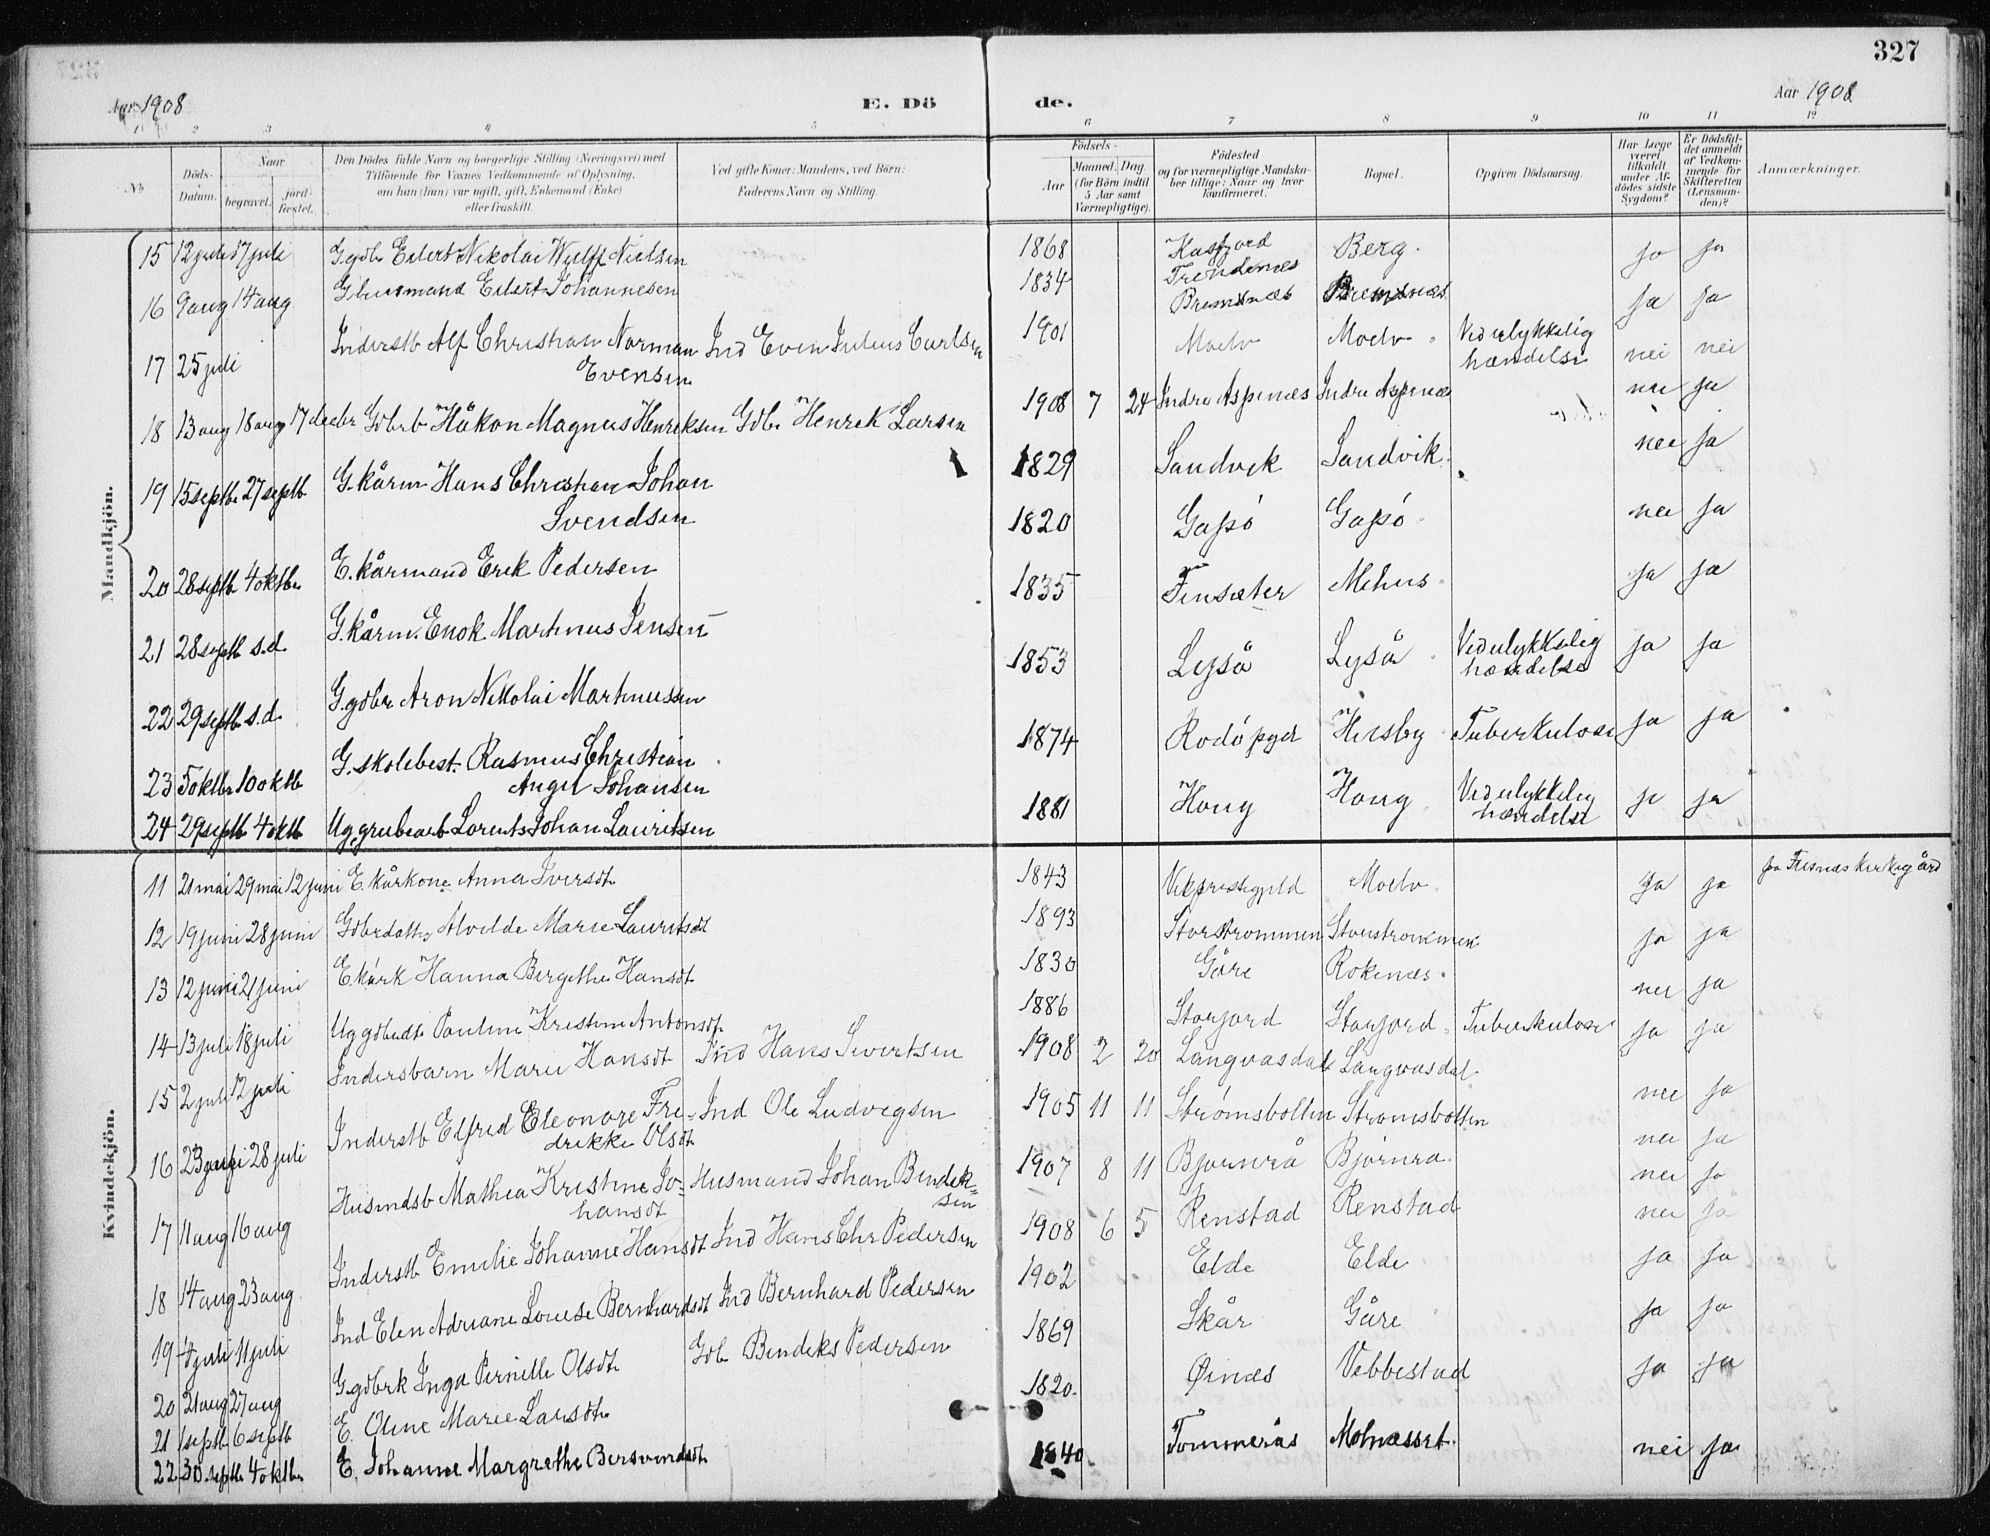 327
Aar 1908
E. Dö
de.
Aar 1908
1 2 3 4 5 6 7 8 9 10 11 12
No
Döds-Datum.
Naar
begravet.
jord-fæstet.
Den Dödes fulde Navn og borgerlige Stilling (Næringsvei) med
Tilföiende for Voxnes Vedkommende af Oplysning,
om han (hun) var ugift, gift, Enkemand (Enke)
eller fraskilt.
Ved gifte Koner: Mandens, ved Börn:
Faderens Navn og Stilling.
Födsels-
Aar
Maaned. Dag.
(for Börn indtil
5 Aar samt
Værnepligtige).
Födested
og for værnepligtige Mandska-
ber tillige: Naar og hvor
konfirmeret.
Bopæl.
Opgiven Dödsaarsag.
Har Læge
været
tilkaldt
under Af-
dödes sidste
Sygdom?
Er Dödsfal-
det anmeldt
af Vedkom-
mende for
Skifteretten
(Lensman-
den)?
Anmærkninger.
Mandkjön.
15 12 juli 17 juli G.gdbr Eilert Nikolai Wulff Nielsen 1868 Kasfjord Trondenes Berg. ja ja
16 9 aug 14 aug G husmand Eilert Johannesen 1834 Bremsnæs Bremsnæs ja ja
17 25 juli Inderstb Alf Christian Norman Evensen Ind Even Julius Carlsen 1901 Moelv Moelv Ved ulykkelig hændelse nei nei
18 13 aug 18 aug 17 decbr Gdbrb Håkon Magnus Henriksen Gdbr Henrik Larsen 1908 7 24 Indre Aspenæs Indre Aspenæs nei ja
19 15 septb 27 septb G.kårm Hans Christian Johan Svendsen 1829 Sandvik Sandvik. nei ja
20 28 septb 4 oktbr E. kårmand Erik Pedersen 1820 Gapsö Gapsö nei ja
21 28 septb s.d. G.kårm. Enok Martinus Jensen 1835 Finsæter Mehus ja ja
22 29 septb s.d. G.gdbr Aron Nikolai Martinussen 1853 Lysså Lyså Ved ulykkelig hændelse ja ja
23 5 oktbr 10 oktb G. skolebest. Rasmus Christian Angel Johansen 1874 Rodö pgd Husby Tuberkulose ja ja
24 29 septb 4 oktb Ug grubearb Lorents Johan Lauritsen 1881 Houg Houg Ved ulykkelig hændelse ja ja
Kvindekjön.
11 21 mai 29 mai 12 juni E. kårkone Anna Iversdt 1843 Vik præstegjeld Moelv ja ja på Fresnes kirkegård
12 19 juni 28 juni Gdbrdatter Alvilde Marie Lauritsdt 1893 Storstrommen Storstrommen ja ja
13 12 juni 21 juni E kårk Hanna Bergithe Hansdt 1830 Gåre Rokenæs. nei ja
14 13 juli 18 juli Ug gdbrdt Pauline Kristine Antonsdt 1886 Storjord Storjord Tuberkulose ja ja
15 2 juli 12 juli Indersbarn Marie Hansdt Ind Hans Sivertsen 1908 2 20 Langvasdal Langvasdal nei ja
16 23 juni 28 juli Inderstb Elfred Eleonore Fredrikke Olsdt Ind Ole Ludvigsen 1905 11 11 Strömsbotten Strömsbotten nei ja
17 11 aug 16 aug Husmdsb Mathea Kristine Johansdt Husmand Johan Bendiksen 1907 8 11 Bjørnrå Bjørnrå nei ja
18 14 aug 23 aug Inderstb Emilie Johanne Hansdt Ind Hans Chr Pedersen 1908 6 5 Renstad Renstad nei ja
19 4 juli 11 juli Ind Elen Adriane Louise Bernhardsdt Ind Bernhard Pedersen 1902 Elde Elde ja ja
20 21 aug 27 aug G.gdbrk Inga Pernille Olsdt Gdb Bendiks Pedersen 1869 Skår Gåre ja ja
21 1 septb 6 septb E. Oline Marie Larsdt 1820 Øinæs Vebbestad ja ja
22 30 septb 4 oktbr E. Johanne Margrethe Bersvendsdt 1840 Tommerås Molnesset nei ja